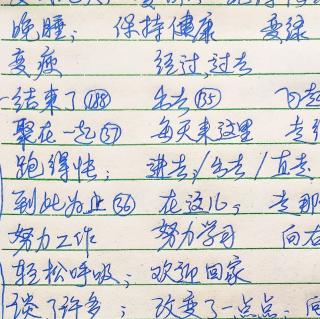 晚睡； 保持健康 变绿
变瘦 经过,过去
结束了(188) 出去(135) 飞起
聚在一起(37) 每天来这里 走
跑得快； 进去/出去/直走
到此为止(36) 在这儿。 走那
努力工作 努力学习 向右
轻松呼吸； 欢迎回家
谈了许多； 改变了一点点； 向